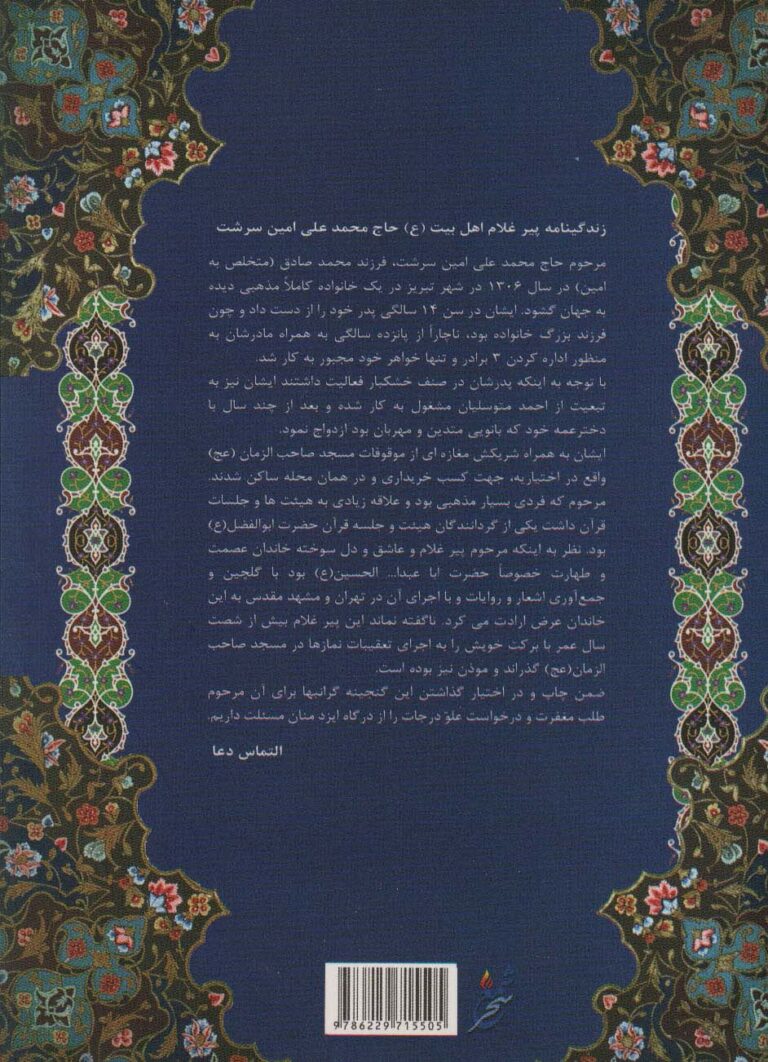 زندگینامه پیر غلام اهل بیت (ع) حاج محمد علی امین سرشت
مرحوم حاج محمد علی امین سرشت، فرزند محمد صادق (متخلص به
امین) در سال ۱۳۰۶ در شهر تبریز در یک خانواده کاملاً مذهبی دیده
به جهان گشود. ایشان در سن ۱۴ سالگی پدر خود را از دست داد و چون
فرزند بزرگ خانواده بود، ناچاراً از پانزده سالگی به همراه مادرشان به
منظور اداره کردن ۳ برادر و تنها خواهر خود مجبور به کار شد.
با توجه به اینکه پدرشان در صنف خشکبار فعالیت داشتند ایشان نیز به
تبعیت از احمد متوسلیان مشغول به کار شده و بعد از چند سال با
دخترعمه خود که بانویی متدین و مهربان بود ازدواج نمود.
ایشان به همراه شریکش مغازه ای از موقوفات مسجد صاحب الزمان (عج)
واقع در اختیاریه، جهت کسب خریداری و در همان محله ساکن شدند.
مرحوم که فردی بسیار مذهبی بود و علاقه زیادی به هیئت ها و جلسات
قرآن داشت یکی از گردانندگان هیئت و جلسه قرآن حضرت ابوالفضل(ع)
بود. نظر به اینکه مرحوم پیر غلام و عاشق و دل سوخته خاندان عصمت
و طهارت خصوصاً حضرت ابا عبدا... الحسین(ع) بود با گلچین و
جمع‌آوری اشعار و روایات و با اجرای آن در تهران و مشهد مقدس به این
خاندان عرض ارادت می کرد. ناگفته نماند این پیر غلام بیش از شصت
سال عمر با برکت خویش را به اجرای تعقیبات نمازها در مسجد صاحب
الزمان(عج) گذراند و موذن نیز بوده است.
ضمن چاپ و در اختیار گذاشتن این گنجینه گرانبها برای آن مرحوم
طلب مغفرت و درخواست علوّ درجات را از درگاه ایزد منان مسئلت داریم.
التماس دعا
9 786229 715505